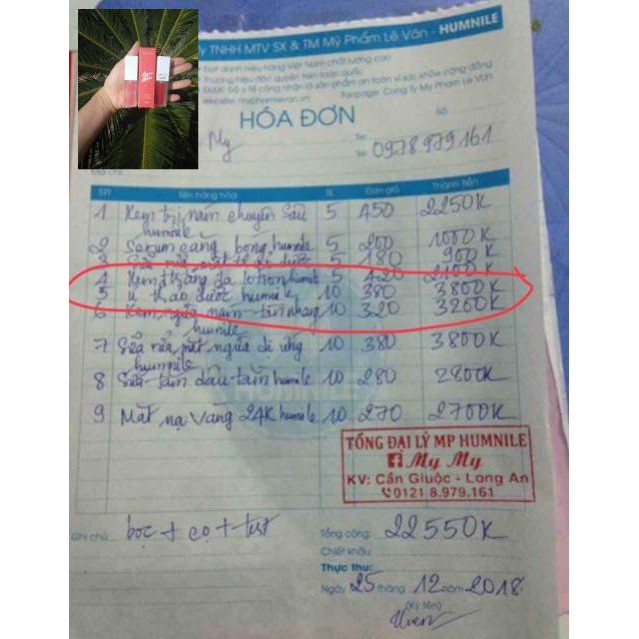 ty TNHH MTV SX & TM Mỹ Phẩm Lê Vân - HUMNILE
HÓA ĐƠN
My
Tel: 0978 979 161
STT Tên hàng hóa SL Đơn giá Thành tiền
1 Kem trị nám chuyên sâu humnile 5 450 2250K
2 Serum căng bóng humnile 5 200 1000K
3 5 180 900K
4 Kem trắng da lotion humnile 5 420 2100K
5 ủ thảo dược humnile 10 380 3800K
6 Kem ngừa nám - tàn nhang humnile 10 320 3200K
7 Sữa rửa mặt ngừa dị ứng humnile 10 380 3800K
8 Sữa tắm dâu tằm humnile 10 280 2800K
9 Mặt nạ vàng 24K humnile 10 270 2700K
TỔNG ĐẠI LÝ MP HUMNILE
My My
KV: Cần Giuộc - Long An
0121 8.979.161
Ghi chú: bọc + cọ + test
Tổng cộng: 22550K
Chiết khấu:
Thực thu:
Ngày 25 tháng 12 năm 2018
(Ký tên)